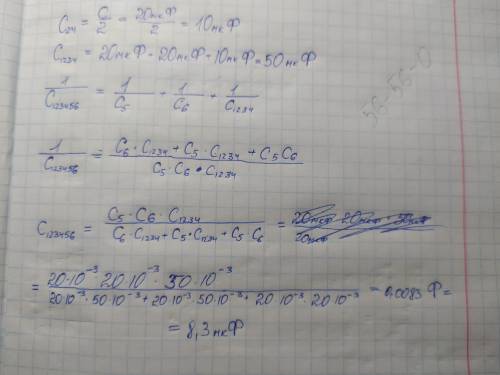 C₂₄ = C/2 = 20мкФ/2 = 10мкФ
C₁₂₃₄ = 20мкФ + 20мкФ + 10мкФ = 50мкФ
1/C₁₂₃₄₅₆ = 1/C₅ + 1/C₆ + 1/C₁₂₃₄
1/C₁₂₃₄₅₆ = (C₆·C₁₂₃₄ + C₅·C₁₂₃₄ + C₅C₆)/(C₅·C₆·C₁₂₃₄)
C₁₂₃₄₅₆ = (C₅·C₆·C₁₂₃₄)/(C₆·C₁₂₃₄ + C₅·C₁₂₃₄ + C₅·C₆) =
= (20·10⁻³·20·10⁻³·50·10⁻³)/(20·10⁻³·50·10⁻³ + 20·10⁻³·50·10⁻³ + 20·10⁻³·20·10⁻³) = 0,0083 Ф =
= 8,3мкФ